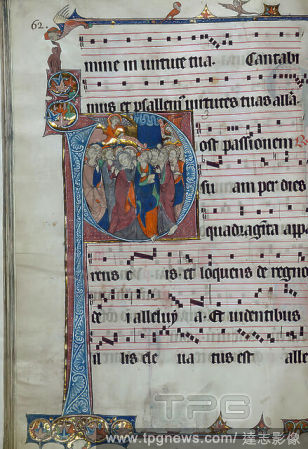 62.
mine in virtute tua. Cantabi
mus et psallem9 virtutes tuas alla.
Post passionem
suam per dies
quadragita app
rens e is et loquens de regno
de i alleluy a. Et videntibus
il lis ele va tus est alle
TPG
www.tpgnews.com/達志影像